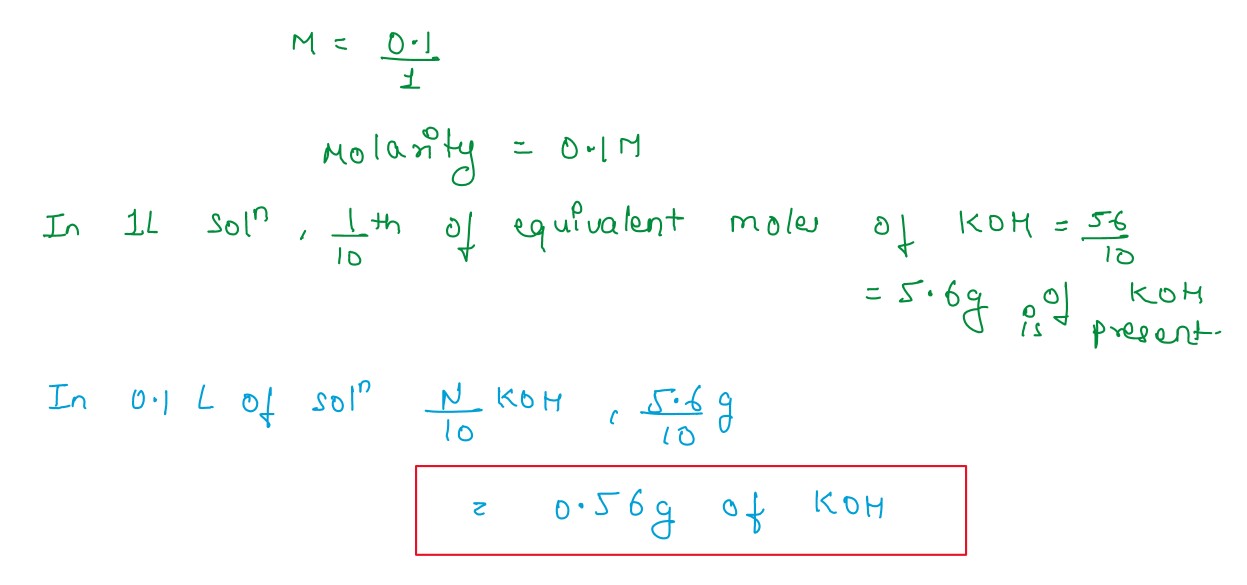 M = 0.1/1
Molarity = 0.1M
In 1L solⁿ, 1/10 th of equivalent moles of KOH = 56/10
= 5.6g of KOH is present.
In 0.1 L of solⁿ N/10 KOH, 5.6/10 g
= 0.56g of KOH